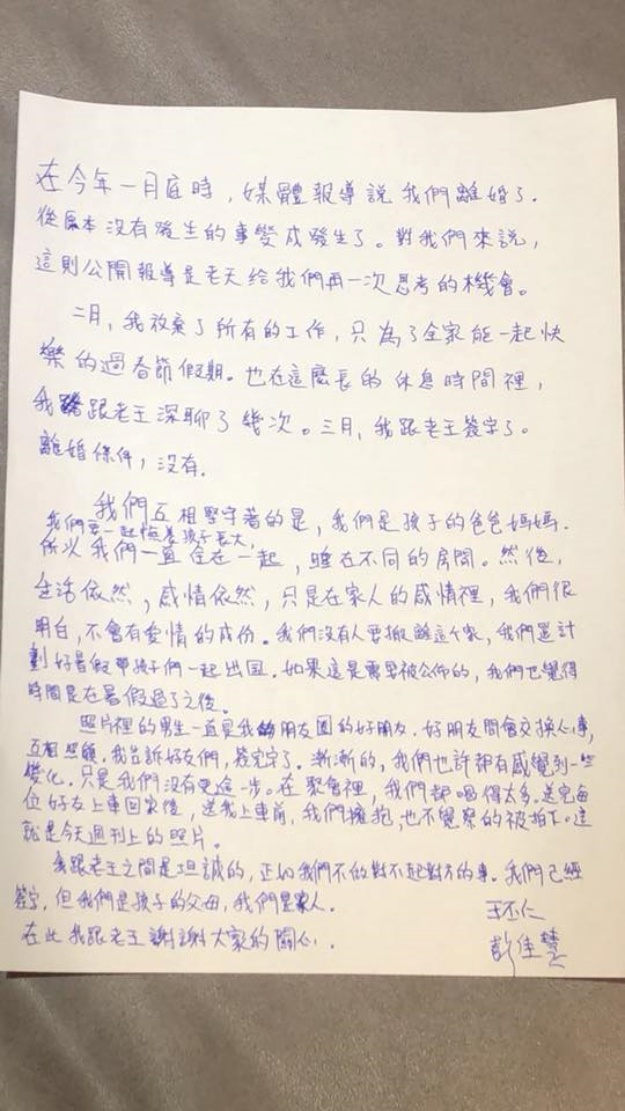 在今年一月底時，媒體報導說我們離婚了.
從原本沒有發生的事變成發生了。對我們來說，
這則公開報導是老天給我們再一次思考的機會。
二月，我放棄了所有的工作，只為了全家能一起快
樂的過春節假期。也在這麼長的休息時間裡，
我跟老王深聊了幾次。三月，我跟老王簽字了。
離婚條件，沒有.
我們互相堅守著的是，我們是孩子的爸爸媽媽.
我們要一起陪著孩子長大,
所以我們一直住在一起，睡在不同的房間。然後，
生活依然，感情依然，只是在家人的感情裡，我們很
明白，不會有愛情的成份。我們沒有人要搬離這個家，我們還計
劃好暑假帶孩子們一起出国. 如果這是需要被公佈的，我們也覺得
時間是在暑假過了之後。
照片裡的男生一直是我的朋友圈的好朋友. 好朋友間會交換心事,
互相照顧. 我告訴好友們，簽完字了. 漸漸的，我們也許都有感覺到一些
變化. 只是我們沒有更進一步。在聚會裡，我們都喝得太多. 送完每
位好友上車回家後，送我上車前，我們擁抱，也不覺察的被拍下. 這
就是今天週刊上的照片。
我跟老王之間是坦誠的，正如我們不做對不起對方的事. 我們已經
簽字，但我們是孩子的父母，我們是家人.
王丕仁
在此我跟老王謝謝大家的關心.
彭佳慧